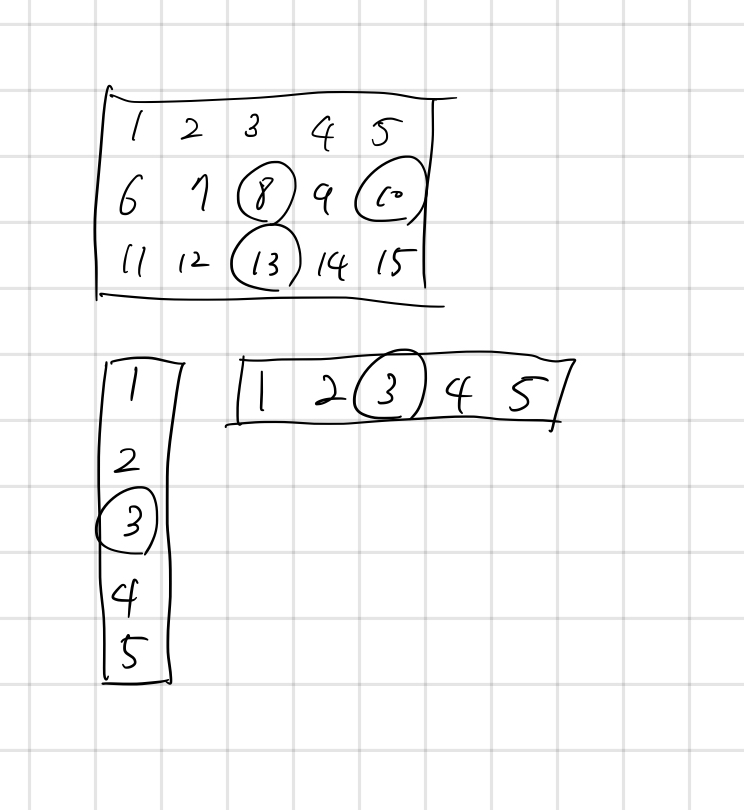 1 2 3 4 5
6 7 8 9 10
11 12 13 14 15
1 2 3 4 5
1
2
3
4
5